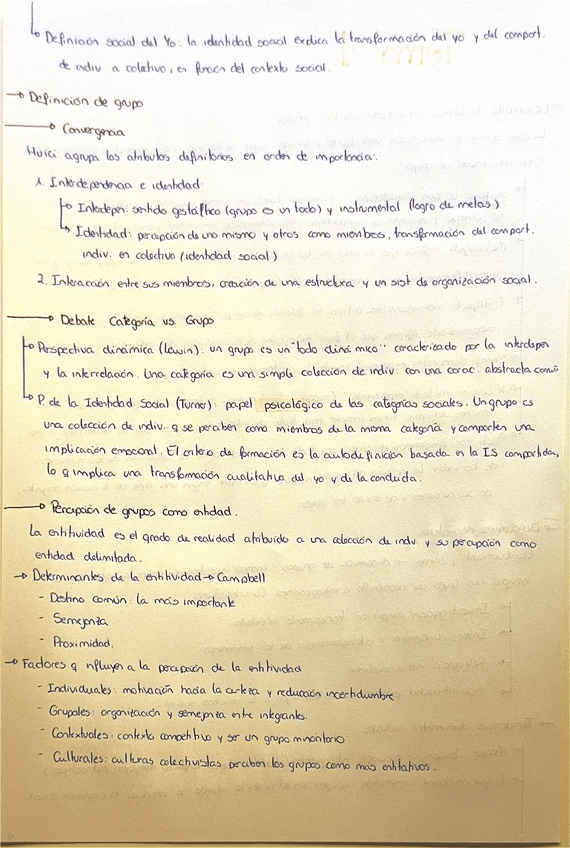 Definición social del Yo: la identidad social explica la transformación del yo y del comport.
de indiv a colectivo, en función del contexto social.
→ Definición de grupo
→ Convergencia
Huici agrupa los atributos definitorios en orden de importancia:
1. Interdependencia e identidad
Interdepen: sentido gestáltico (grupo es un todo) y instrumental (logro de metas)
Identidad: percepción de uno mismo y otros como miembros, transformación del comport.
indiv. en colectivo (identidad social)
2. Interacción: entre sus miembros, creación de una estructura y un sist de organización social.
→ Debate Categoría vs Grupo
Perspectiva dinámica (Lewin): un grupo es un "todo dinámico" caracterizado por la interdepen
y la interrelación. Una categoría es una simple colección de indiv. con una carac. abstracta común
P. de la Identidad Social (Turner): papel psicológico de las categorías sociales. Un grupo es
una colección de indiv. q se perciben como miembros de la misma categría y comparten una
implicación emocional. El criterio de formación es la autodefinición basada en la IS compartida,
lo q implica una transformación cualitativa del yo y de la conducta.
→ Percepción de grupos como entidad.
La entitividad es el grado de realidad atribuido a una colección de indiv y su percepción como
entidad delimitada.
→ Determinantes de la entitividad → Campbell
- Destino común: la más importante
- Semejanza
- Proximidad.
→ Factores q influyen a la percepción de la entitividad
- Individuales: motivación hacia la certeza y reducción incertidumbre
- Grupales: organización y semejanza entre integrantes.
- Contextuales: contexto competitivo y ser un grupo minoritario
- Culturales: culturas colectivistas perciben los grupos como más entitativos.